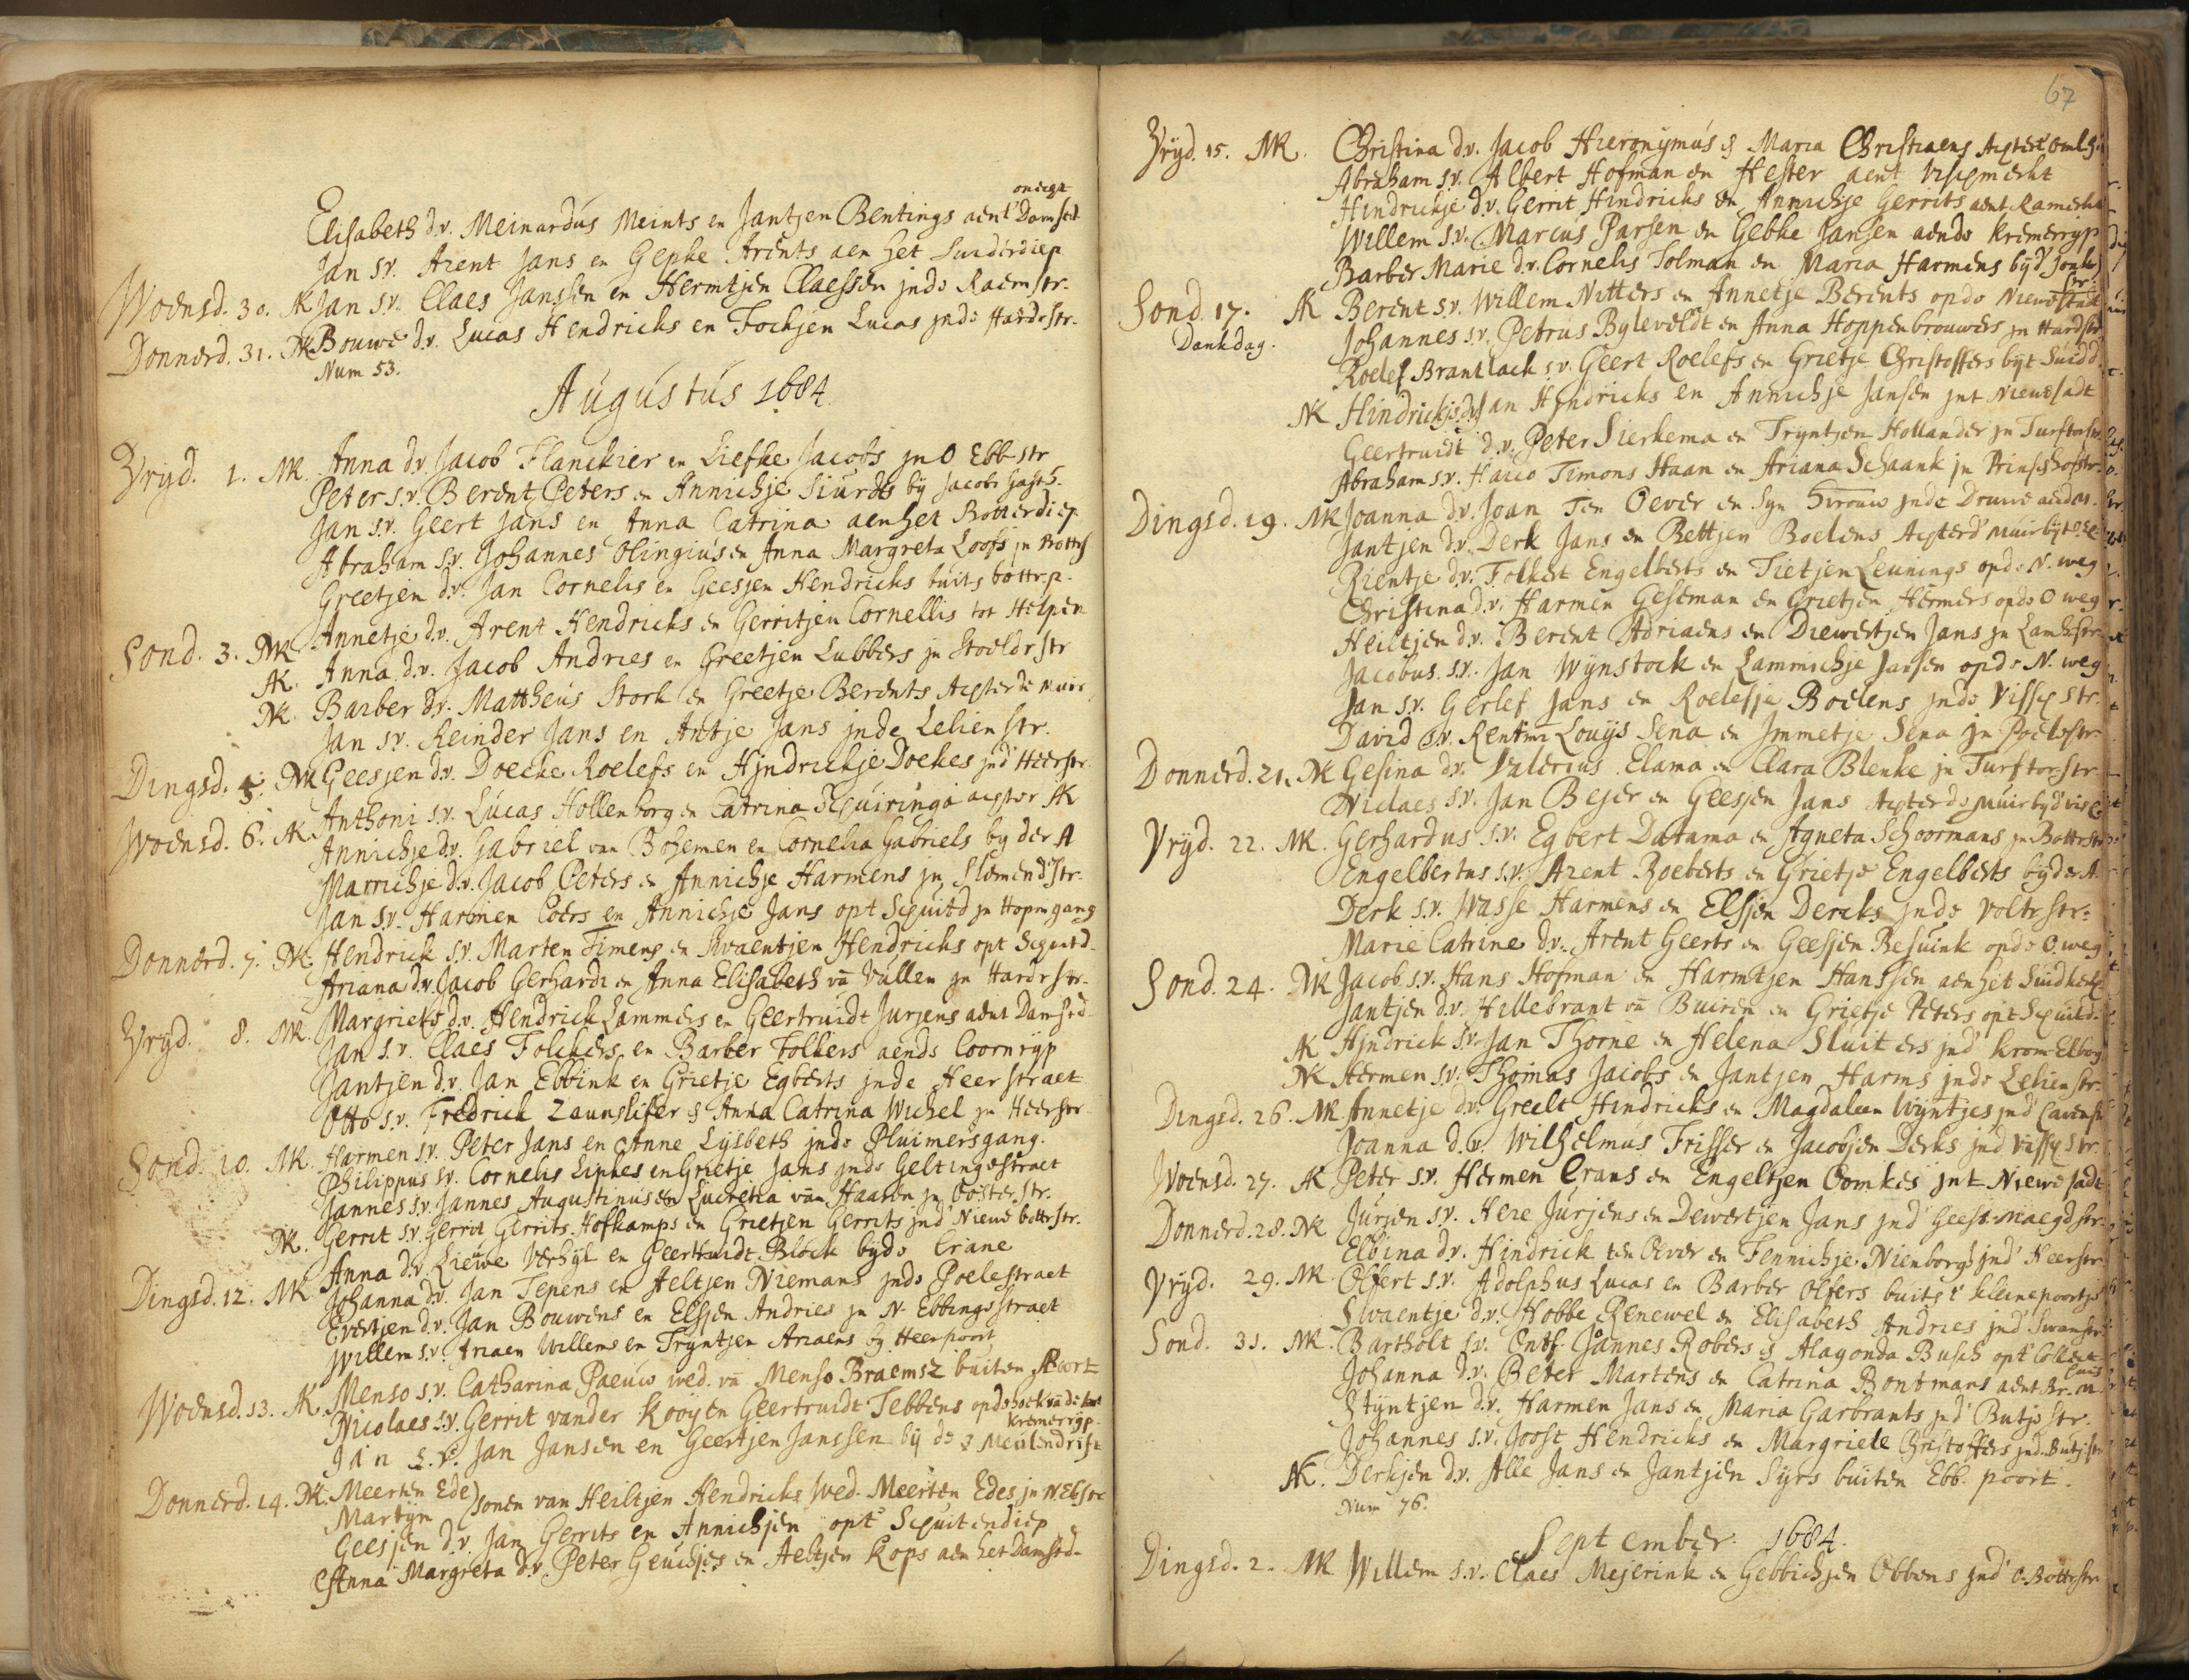 onecht
Elisabeth d.v. Meinardus Meints en Jantjen Bentings aent Damsted
Jan s.v. Arent Jans en Gepke Arents aen het Suiderdiep
Woensd. 30. AK Jan s.v. Claes Janssen en Hermtjen Claessen inde Raemstr.
Donnerd. 31. NK Bouwe d.v. Lucas Hendricks en Fockjen Lucas inde Hardestr.
Num 53.
Augustus 1684
Vryd. 1. MK. Anna d.v. Jacob Flanckier en Liefke Jacobs jn O Ebb str
Peter s.v. Berent Peters en Annichje Siurds by Jacobs gasth.
Jan s.v. Geert Jans en Anna Catrina aenhet Botterdiep
Abraham s.v. Johannes Olingius en Anna Margreta Loofs jn Botts
Greetjen d.v. Jan Cornelis en Geesjen Hendricks buits bottr.p.
Sond. 3. MK Annetje d.v. Arent Hendricks en Gerritjen Cornellis tot Helpen
AK. Anna d.v. Jacob Andries en Greetjen Lubbers jn Stoeldrstr
NK. Barber d.v. Mattheus Stork en Greetje Berents Achterde muir
Jan s.v. Reinder Jans en Antje Jans jnde Lelien str.
Dingsd. 5. NK Geesjen d.v. Doecke Roelefs en Hjndrickje Doekes jnd' Heerstr.
Anthoni s.v. Lucas Hollenborg en Catrina Schuiringa achter AK
Woensd. 6. AK Annichje d.v. Gabriel van Bosemen en Cornelia Gabriels by der A
Marrichje d.v. Jacob Peters en Annichje Harmens jn Slemend'str.
Jan s.v. Harmen Coers en Annichje Jans opt Schuitd jn Hopmgang
Donnerd. 7. NK. Hendrick s.v. Marten Timens en Swaentjen Hendricks opt Schuitd.
Ariana d.v. Jacob Gerhardi en Anna Elisabeth vā Vullen jn Hardrstr.
Vryd. 8. MK. Margriets d.v. Hendrick Lammers en Geertruidt Jurjens aent Damsted
Jan s.v. Claes Folckers en Barber Folkers aende Coornryp
Jantjen d.v. Jan Ebbink en Grietje Egberts jnde Heer straet
Otto s.v. Fredrick Zaunslifer & Anna Catrina Wichel jn Heerstr
Sond. 10. MK. Harmen s.v. Peter Jans en Anne Lysbeth jnde Pluimersgang.
Philippus s.v. Cornelis Lipkes en Grietje Jans jnde Geltingestraet
Jannes s.v. Jannes Augustinus en Lucretia van Haaren jn Ooster str.
NK. Gerrit s.v. Gerrit Gerrits Hofkamps en Grietjen Gerrits jnd' Nieuwe bottrstr.
Anna d.v. Liewe Verhyl en Geertruidt Block byde Crane
Dingsd. 12. MK Johanna d.v. Jan Tepens en Aeltjen Niemans jnde Poelestraet
Evertjen d.v. Jan Bouwens en Elsjen Andries jn N. Ebbingestraet
Willem s.v. Ariaen Willems en Tryntjen Ariaens by Heerpoort
Woensd. 13. AK. Menso s.v. Catharina Paeuw wed. vā Menso Braemsz buiten Apoort
Nicolaes s.v. Gerrit vander Kooy en Geertruidt Tebbens opde hoek vā de
Kremerryp.
Jan s.v. Jan Jansen en Geertjen Janssen by de 3 Meulendrift
Donnerd. 14. NK. Meerten Ede
Martyn ) sonen van Heiltjen Hendricks wed. Meerten Edes jn N. Eb str
Geesjen d.v. Jan Gerrits en Annichjen opt Schuitendiep
Anna Margreta d.v. Peter Geuchjes en Aeltjen Kops aen het Damsted.
67
Vryd. 15. MK. Christina d.v. Jacob Hieronymus & Maria Christiaens Achter
Abraham s.v. Albert Hofman en Hester aent Vischmerkt
Hindrickje d.v. Gerrit Hindricks en Annichje Gerrits aent
Willem s.v. Marcus Parsen en Gebke Jansen aende Kremerryp
Barber Marie d.v. Cornelis Tolman en Maria Harmens byd'
str.
Sond. 17. AK Berent s.v. Willem Nitters en Annetje Berents opde Nieuwestad
Dankdag.
Johannes s.v. Petrus Byleveldt en Anna Hoppenbrouwers jn Hardstr
Roelef Brantlack s.v. Geert Roelefs en Grietje Christoffers byt Suidd.
NK Hindrickje d.v. Jan Hjndricks en Annichje Jansen jnt Nieuwstadt
Geertruidt d.v. Peter Sierkema en Tryntjen Hollander jn Turftorstr.
Abraham s.v. Haico Timons Haan en Ariana Schaank jn Prinsehofstr.
Dingsd. 19. MK Joanna d.v. Joan Ten Oever en Syn H.vrouw jnde Druive
Jantjen d.v. Derk Jans en Bettjen Boelens Achterd' muir byt
Rientje d.v. Folkert Engelberts en Tietjen Leunings opde N. weg
Christina d.v. Harmen Geseman en Grietjen Hermers opde O weg
Heiltjen d.v. Berent Adriaens en Diewertjen Jans jn Lamhstr.
Jacobus s.v. Jan Wynstock en Lammichje Jansen opde N. weg
Jan s.v. Gerlef Jans en Roelefje Boelens jnde Vissch str.
David s.v. Rentmr Louys Sena en Jmmetje Sena jn Poelestr
Donnerd. 21. NK Gesina d.v. Valerius Elama en Clara Blenke jn Turftorstr.
Niclaes s.v. Jan Bejer en Geesjen Jans Achterde muir byd'
Vryd. 22. MK. Gerhardus s.v. Egbert Datama en Agneta Schoormans jn Bottrstr
Engelbertus s.v. Arent Roeberts en Grietje Engelberts byder A.
Derk s.v. Wasse Harmens en Elsjen Dercks jnde Voltrstr.
Marie Catrine d.v. Arent Geerts en Geesjen Besuink opde O. weg
Sond. 24. MK Jacob s.v. Hans Hofman en Harmtjen Hanssen aenhet
Jantjen d.v. Hillebrant vā Buiren en Grietje Peters opt Schuitd.
AK Hjndrick s.v. Jan Thorne en Helena Sluiters jnd' Krom Elbog
NK Hermen s.v. Thomas Jacobs en Jantjen Harms jnde Lelien str.
Dingsd. 26. MK Annetje d.v. Greelt Hindricks en Magdaleen Wyntjes jnd'
Joanna d.v. Wilhelmus Frisser en Jacobjen Derks jnd' Vissch str.
Woensd. 27. AK Peter s.v. Hermen Crans en Engeltjen Oomkes jnt Niewe stadt
Donnerd. 28. NK Jurjen s.v. Heie Jurjens en Dewertjen Jans jnd' Geest-maegdstr.
Elbina d.v. Hindrick ten Oever en Fennichje Nienborgs jnd' Heerstr
Vryd. 29. MK Olfert s.v. Adolphus Lucas en Barber Olfers buite t' kleine poortje
Swaentje d.v. Hobbe Renewel en Elisabeth Andries jnd' Swanstr.
Sond. 31. MK. Bartholt s.v. Ontf. Jannes Robers & Alagonda Busch opt Collect
huis
Johanna d.v. Peter Martens en Catrina Bontmans aent Br. m.
Styntjen d.v. Harmen Jans en Maria Garbrants jnd' Butje str.
Johannes s.v. Joost Hendricks en Margriete Christoffers jnd. Butjstr
AK. Derkjen d.v. Alle Jans en Jantjen Syrs buiten Ebb. poort.
Num 76.
September 1684.
Dingsd. 2. MK Willem s.v. Claes Mejerink en Gebbichjen Obbens jnd' O. Bottrstr